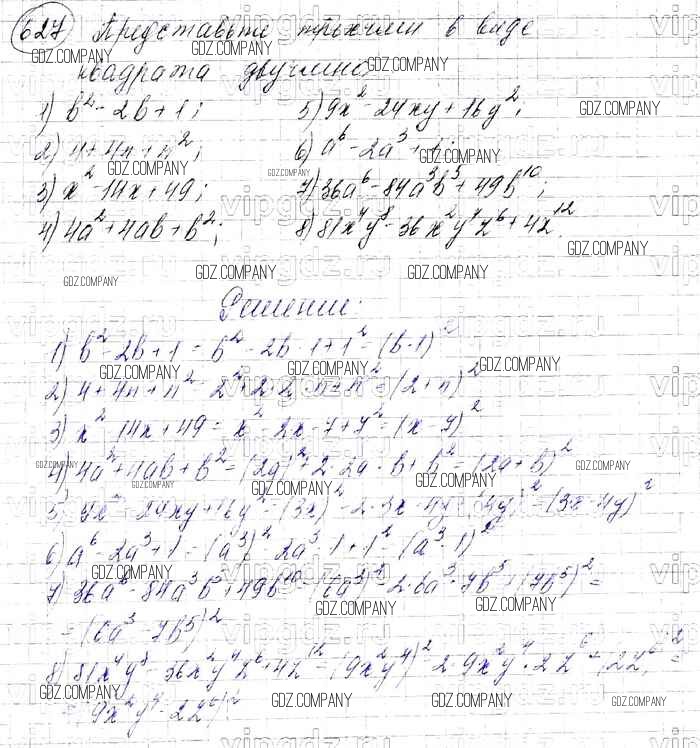 627 Представьте трёхчлен в виде
квадрата двучлена
1) b² - 2b + 1; 5) 9x² - 24xy + 16y²;
2) 4 + 4n + n²; 6) a⁶ - 2a³ + 1;
3) x² - 14x + 49; 7) 36a⁶ - 84a³b⁵ + 49b¹⁰;
4) 4a² + 4ab + b²; 8) 81x⁴y⁸ - 36x²y⁴z⁶ + 4z¹².
Решение:
1) b² - 2b + 1 = b² - 2b · 1 + 1² = (b - 1)²
2) 4 + 4n + n² = 2² + 2 · 2 · n + n² = (2 + n)²
3) x² - 14x + 49 = x² - 2x · 7 + 7² = (x - 7)²
4) 4a² + 4ab + b² = (2a)² + 2 · 2a · b + b² = (2a + b)²
5) 9x² - 24xy + 16y² = (3x)² - 2 · 3x · 4y + (4y)² = (3x - 4y)²
6) a⁶ - 2a³ + 1 = (a³)² - 2a³ · 1 + 1² = (a³ - 1)²
7) 36a⁶ - 84a³b⁵ + 49b¹⁰ = (6a³)² - 2 · 6a³ · 7b⁵ + (7b⁵)² =
= (6a³ - 7b⁵)²
8) 81x⁴y⁸ - 36x²y⁴z⁶ + 4z¹² = (9x²y⁴)² - 2 · 9x²y⁴ · 2z⁶ + (2z⁶)² =
= (9x²y⁴ - 2z⁶)²
GDZ.COMPANY
vipgdz.ru